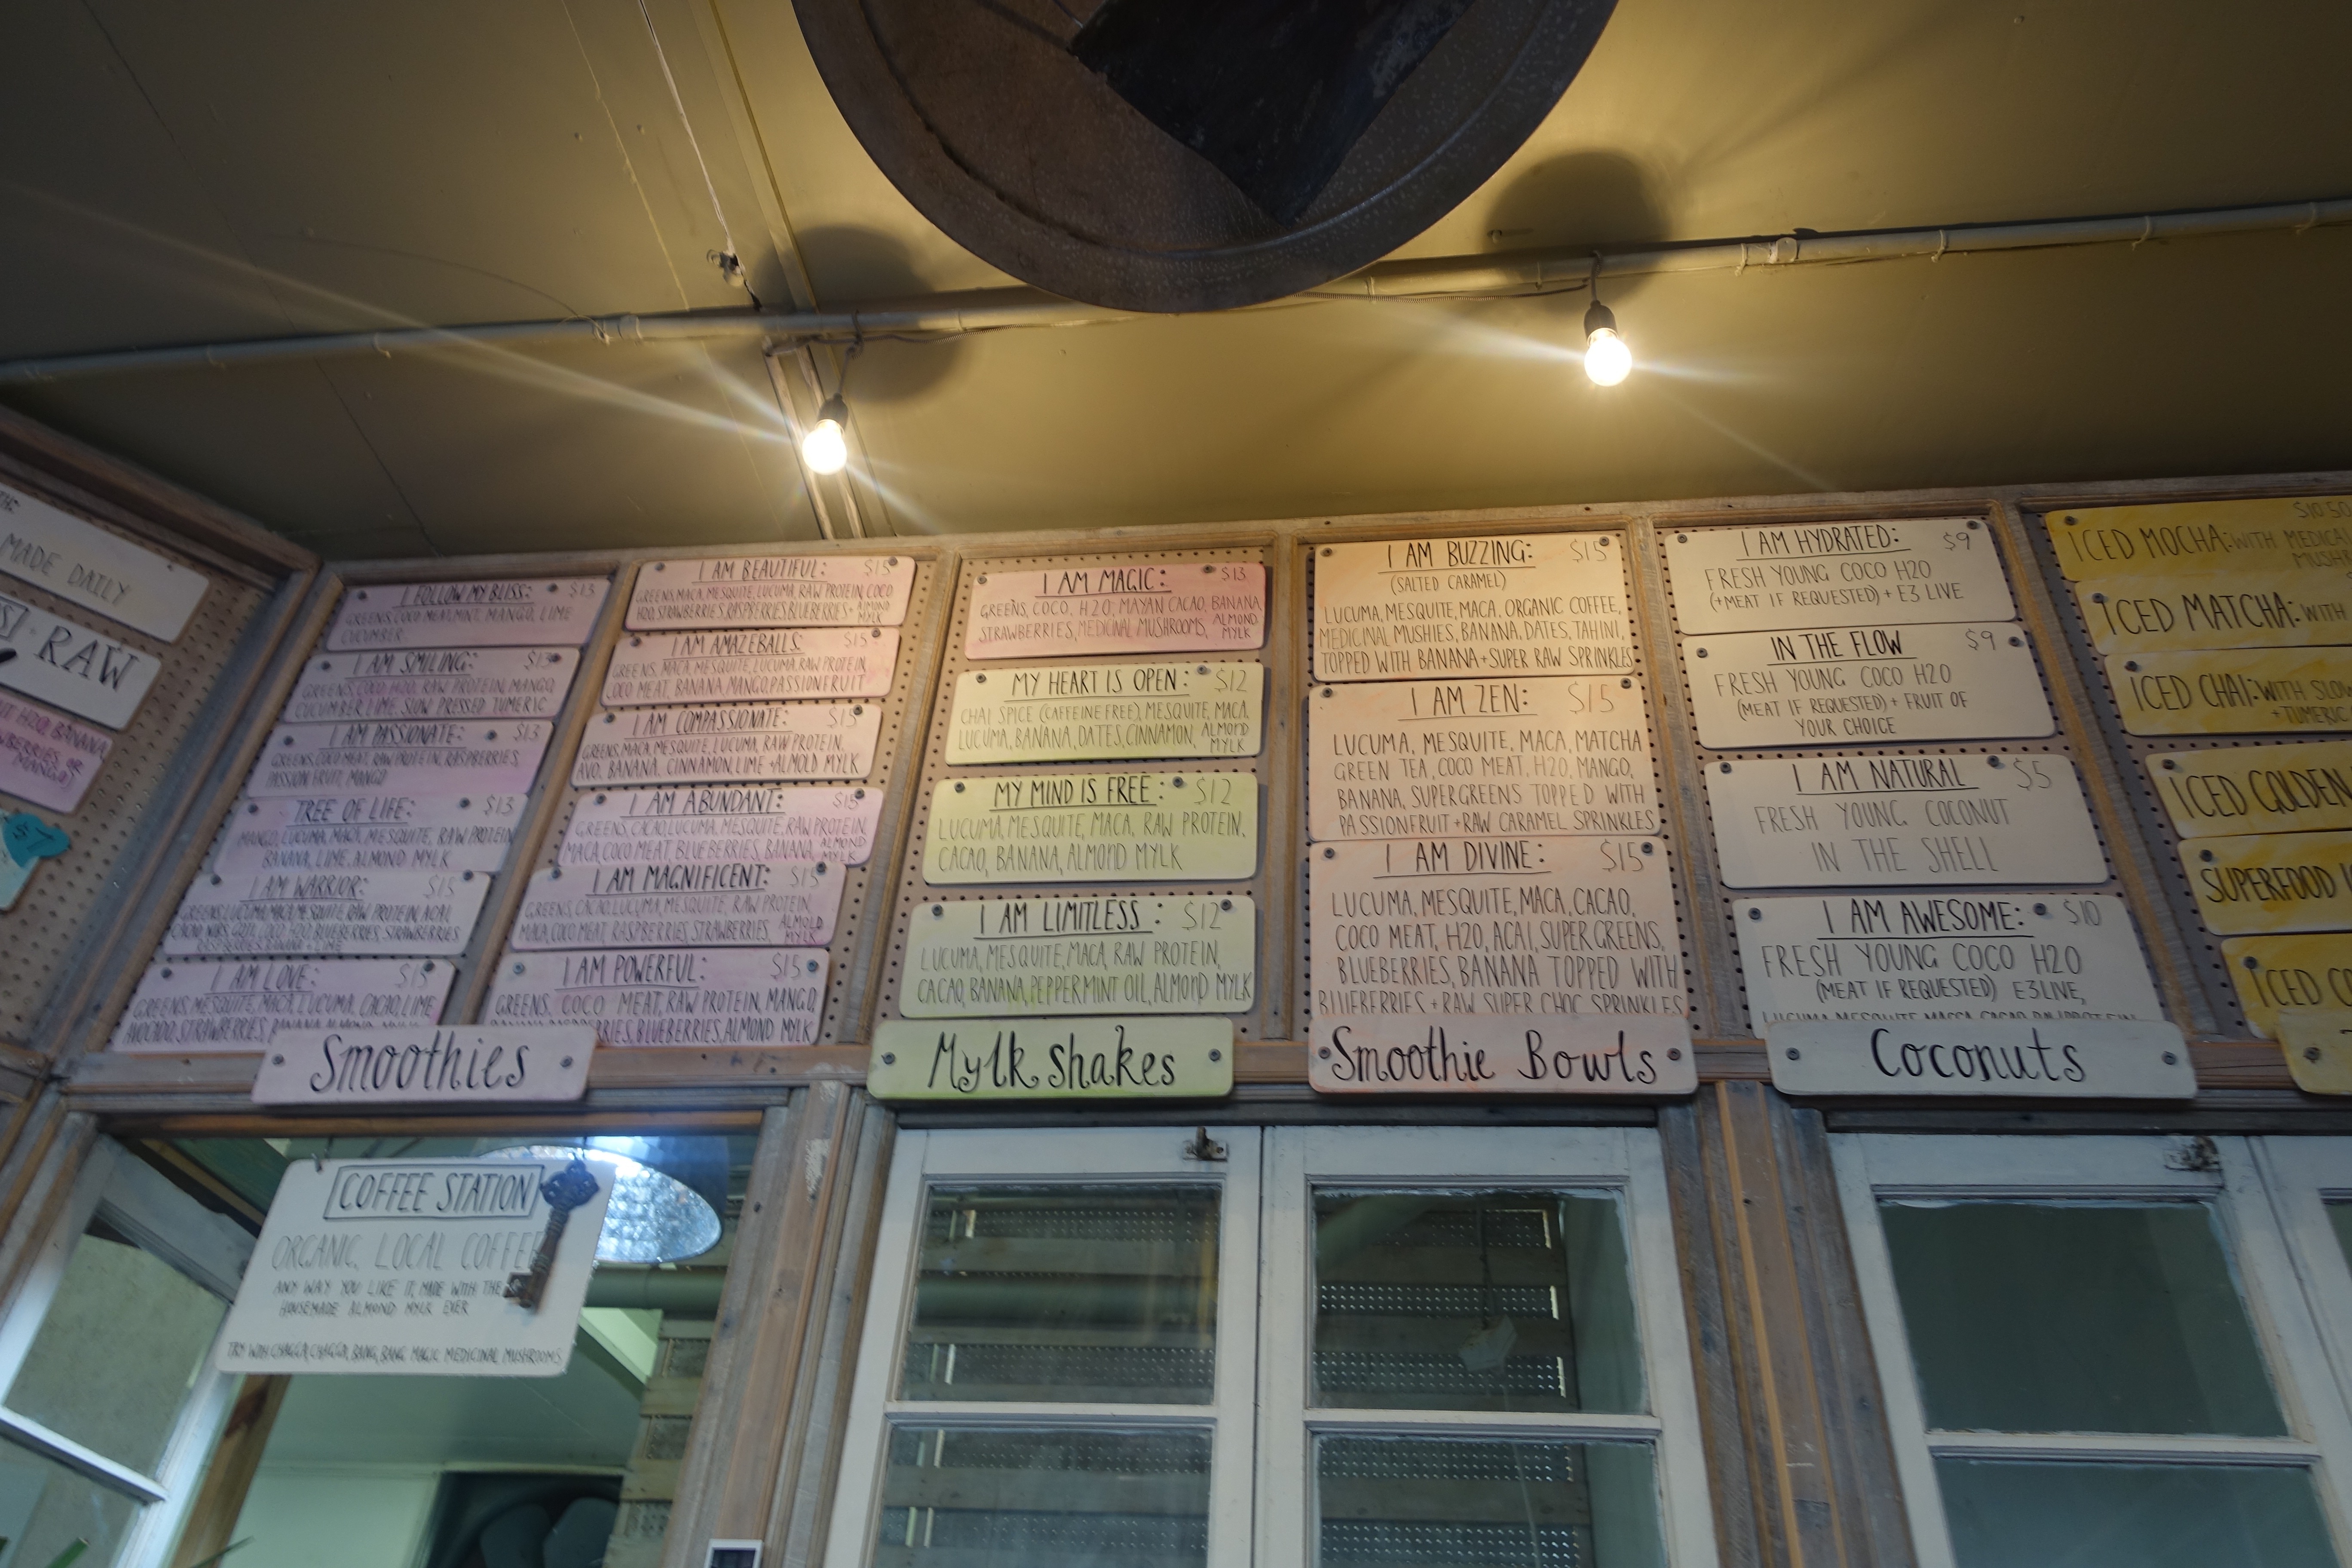 MADE DAILY
RAW
H2O, BANANA
MANGO)
$7
I FOLLOW MY BLISS: $13
GREENS, COCO MEAT, MINT, MANGO, LIME
CUCUMBER
I AM SMILING: $13
GREENS, COCO H2O, RAW PROTEIN, MANGO,
CUCUMBER, LIME, SLOW PRESSED TUMERIC
I AM PASSIONATE: $13
GREENS, COCO MEAT, RAW PROTEIN, RASPBERRIES,
PASSION FRUIT, MANGO
TREE OF LIFE: $13
MANGO, LUCUMA, MACA, MESQUITE, RAW PROTEIN
BANANA, LIME, ALMOND MYLK
I AM WARRIOR: $15
GREENS, LUCUMA, MACA, MESQUITE, RAW PROTEIN, ACAI,
CACAO NIBS, GOJI, COCO H2O, BLUEBERRIES, STRAWBERRIES
RASPBERRIES, BANANA + LIME
I AM LOVE: $15
GREENS, MESQUITE, MACA, LUCUMA, CACAO, LIME
AVOCADO, STRAWBERRIES, BANANA, ALMOND MYLK
I AM BEAUTIFUL: $15
GREENS, MACA, MESQUITE, LUCUMA, RAW PROTEIN, COCO
H2O, STRAWBERRIES, RASPBERRIES, BLUEBERRIES + ALMOND
MYLK
I AM AMAZEBALLS: $15
GREENS, MACA, MESQUITE, LUCUMA, RAW PROTEIN,
COCO MEAT, BANANA, MANGO, PASSIONFRUIT
I AM COMPASSIONATE: $15
GREENS, MACA, MESQUITE, LUCUMA, RAW PROTEIN,
AVO, BANANA, CINNAMON, LIME + ALMOLD MYLK
I AM ABUNDANT: $15
GREENS, CACAO, LUCUMA, MESQUITE, RAW PROTEIN,
MACA, COCO MEAT, BLUEBERRIES, BANANA, ALMOND
MYLK
I AM MAGNIFICENT: $15
GREENS, CACAO, LUCUMA, MESQUITE, RAW PROTEIN,
MACA, COCO MEAT, RASPBERRIES, STRAWBERRIES, ALMOLD
MYLK
I AM POWERFUL: $15
GREENS, COCO MEAT, RAW PROTEIN, MANGO,
BANANA, RASPBERRIES, BLUEBERRIES, ALMOND MYLK
Smoothies
I AM MAGIC: $13
GREENS, COCO, H2O, MAYAN CACAO, BANANA,
STRAWBERRIES, MEDICINAL MUSHROOMS, ALMOND
MYLK
MY HEART IS OPEN: $12
CHAI SPICE (CAFFEINE FREE), MESQUITE, MACA,
LUCUMA, BANANA, DATES, CINNAMON, ALMOND
MYLK
MY MIND IS FREE: $12
LUCUMA, MESQUITE, MACA, RAW PROTEIN,
CACAO, BANANA, ALMOND MYLK
I AM LIMITLESS: $12
LUCUMA, MESQUITE, MACA, RAW PROTEIN,
CACAO, BANANA, PEPPERMINT OIL, ALMOND MYLK
Mylk shakes
I AM BUZZING: $15
(SALTED CARAMEL)
LUCUMA, MESQUITE, MACA, ORGANIC COFFEE,
MEDICINAL MUSHIES, BANANA, DATES, TAHINI,
TOPPED WITH BANANA + SUPER RAW SPRINKLES
I AM ZEN: $15
LUCUMA, MESQUITE, MACA, MATCHA
GREEN TEA, COCO MEAT, H2O, MANGO,
BANANA, SUPERGREENS TOPPED WITH
PASSIONFRUIT + RAW CARAMEL SPRINKLES
I AM DIVINE: $15
LUCUMA, MESQUITE, MACA, CACAO,
COCO MEAT, H2O, ACAI, SUPERGREENS,
BLUEBERRIES, BANANA TOPPED WITH
BLUEBERRIES + RAW SUPER CHOC SPRINKLES
Smoothie Bowls
I AM HYDRATED: $9
FRESH YOUNG COCO H2O
(+MEAT IF REQUESTED) + E3 LIVE
IN THE FLOW $9
FRESH YOUNG COCO H2O
(MEAT IF REQUESTED) + FRUIT OF
YOUR CHOICE
I AM NATURAL $5
FRESH YOUNG COCONUT
IN THE SHELL
I AM AWESOME: $10
FRESH YOUNG COCO H2O
(MEAT IF REQUESTED) E3LIVE,
LUCUMA, MESQUITE, MACCA, CACAO, RAW PROTEIN
Coconuts
$10.50
ICED MOCHA: WITH
ICED MATCHA: WITH
ICED CHAI: WITH
ICED GOLDEN
SUPERFOOD
ICED
COFFEE STATION
ORGANIC, LOCAL COFFEE
ANY WAY YOU LIKE IT, MADE WITH THE
HOUSEMADE ALMOND MYLK EVER
TRY WITH CHAGGA, CHAGGA, BANG, BANG MAGIC MEDICINAL MUSHROOMS